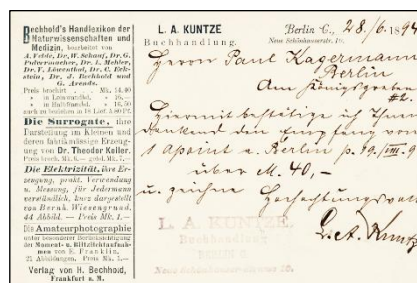 Bechhold's Handlexikon der
Naturwissenschaften und
Medizin, bearbeitet von
A. Velde, Dr. W. Schauf, Dr. G.
Pulvermacher, Dr. L. Mehler,
Dr. V. Löwenthal, Dr. C. Eck-
stein, Dr. J. Bechhold und
G. Arends.
Preis brochirt . . Mk. 14,40
" in Leinwandbd. " 16,—
" in Halbfranzbd. " 16,50
auch zu beziehen in 18 Lief. à 80 Pf.
Die Surrogate, ihre
Darstellung im Kleinen und
deren fabrikmässige Erzeug-
ung von Dr. Theodor Koller.
Preis broch. Mk. 6.— gebd. Mk. 7.—
Die Elektrizität, ihre Er-
zeugung, prakt. Verwendung
u. Messung, für Jedermann
verständlich, kurz dargestellt
von Bernh. Wiesengrund.
44 Abbild. — Preis Mk. 1.—
Die Amateurphotographie
unter besonderer Berücksichtigung
der Moment- u. Blitzlichtaufnah-
men von E. Franklin.
21 Abbildungen, Preis Mk. 1.—
Verlag von H. Bechhold,
Frankfurt a. M.
L. A. KUNTZE
Buchhandlung.
Berlin C., 28./6. 1894
Neue Schönhauserstr. 19.
Herrn Paul Kagermann
Berlin
Am Königsgraben
#2.
Hiermit bestätige ich Ihnen
dankend den Empfang von
1 Apoint a. Berlin p. 19./VIII. 9
über M. 40,—
u. zeichne Hochachtungsvoll
L. A. Kuntze
L. A. KUNTZE.
Buchhandlung
BERLIN C
Neue Schönhauserstrasse 19.